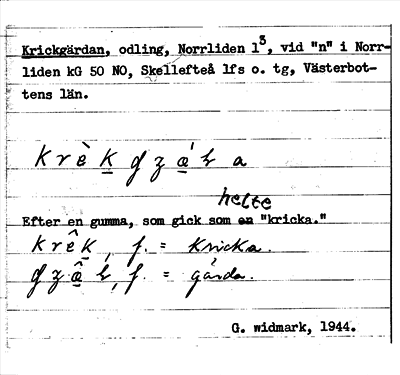 Krickgärdan, odling, Norrliden 1⁵, vid "n" i Norr-
liden kG 50 NO, Skellefteå lfs o. tg, Västerbot-
tens län.
hette
Efter en gumma, som gick som en "kricka."
f. = Kricka.
f. = gärda.
G. Widmark, 1944.